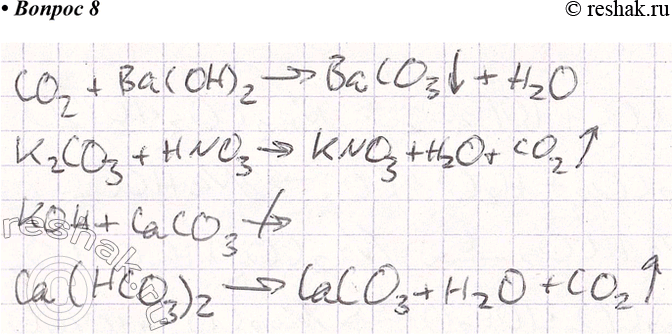 • Вопрос 8
© reshak.ru
CO₂ + Ba(OH)₂ → BaCO₃↓ + H₂O
K₂CO₃ + HNO₃ → KNO₃ + H₂O + CO₂↑
KOH + CaCO₃ ↛
Ca(HCO₃)₂ → CaCO₃ + H₂O + CO₂↑
reshak.ru